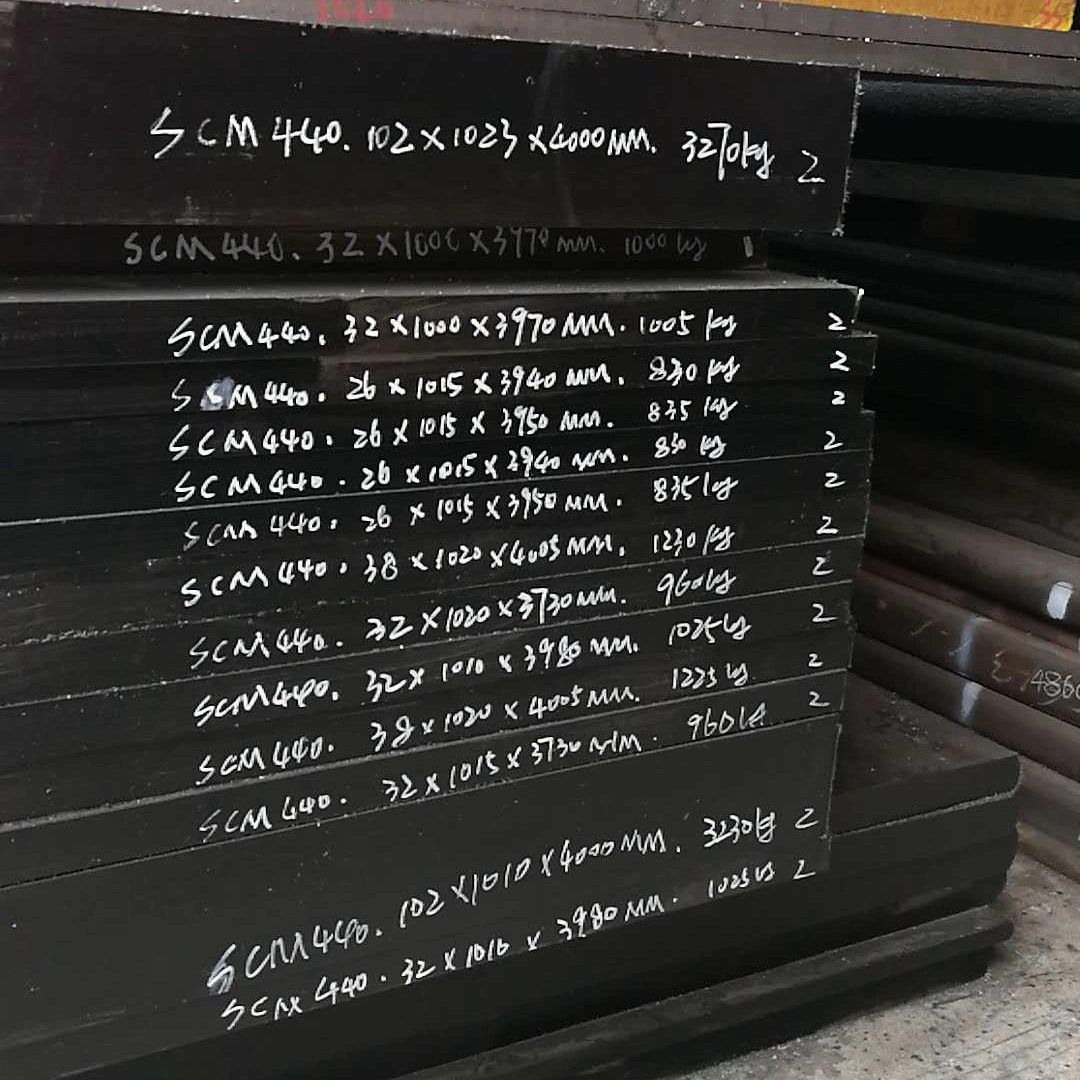 SCM 440. 102×1023×4000MM. 3270kg 2
SCM440. 32×1000×3970mm. 1000kg 1
SCM440. 32×1000×3970MM. 1005kg 2
SCM440. 26×1015×3940MM. 830kg 2
SCM440. 26×1015×3950MM. 835kg 2
SCM440. 26×1015×3940MM. 830kg 2
SCM440. 26×1015×3950MM. 835kg 2
SCM440. 38×1020×4005MM. 1230kg 2
SCM440. 32×1020×3730MM. 960kg 2
SCM440. 32×1010×3980MM. 1025kg 2
SCM440. 38×1020×4005MM. 1225kg 2
SCM440. 32×1015×3730MM. 960kg 2
SCM440. 102×1010×4000MM. 3230kg 2
SCM440. 32×1010×3980MM. 1025kg 2